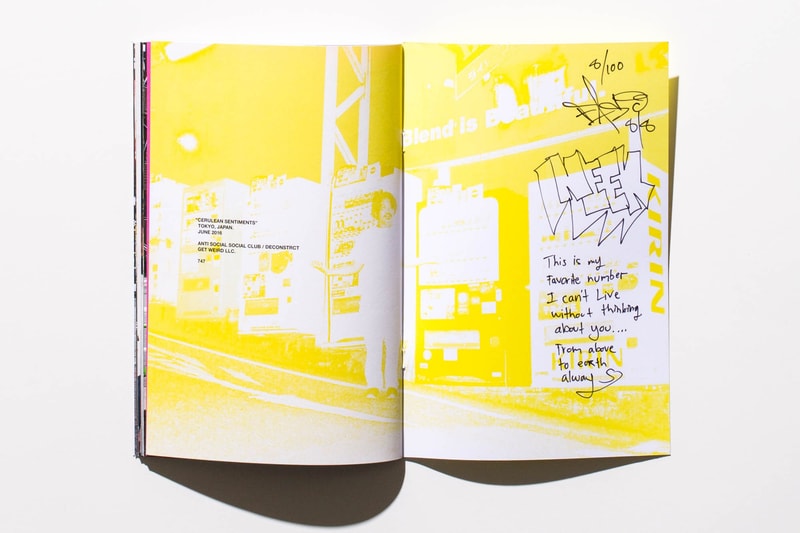 "CERULEAN SENTIMENTS"
TOKYO, JAPAN.
JUNE 2016
ANTI SOCIAL SOCIAL CLUB / DECONSTRCT
GET WEIRD LLC.
747
Blend is Beautiful
KIRIN
8/100
88
WEEK
This is my
Favorite number
I can't Live
without thinking
about you....
From above
to earth
always